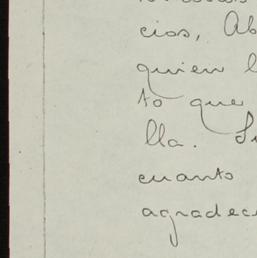 cios, Ab
quien l
to que
lla. Si
cuanto
agradec